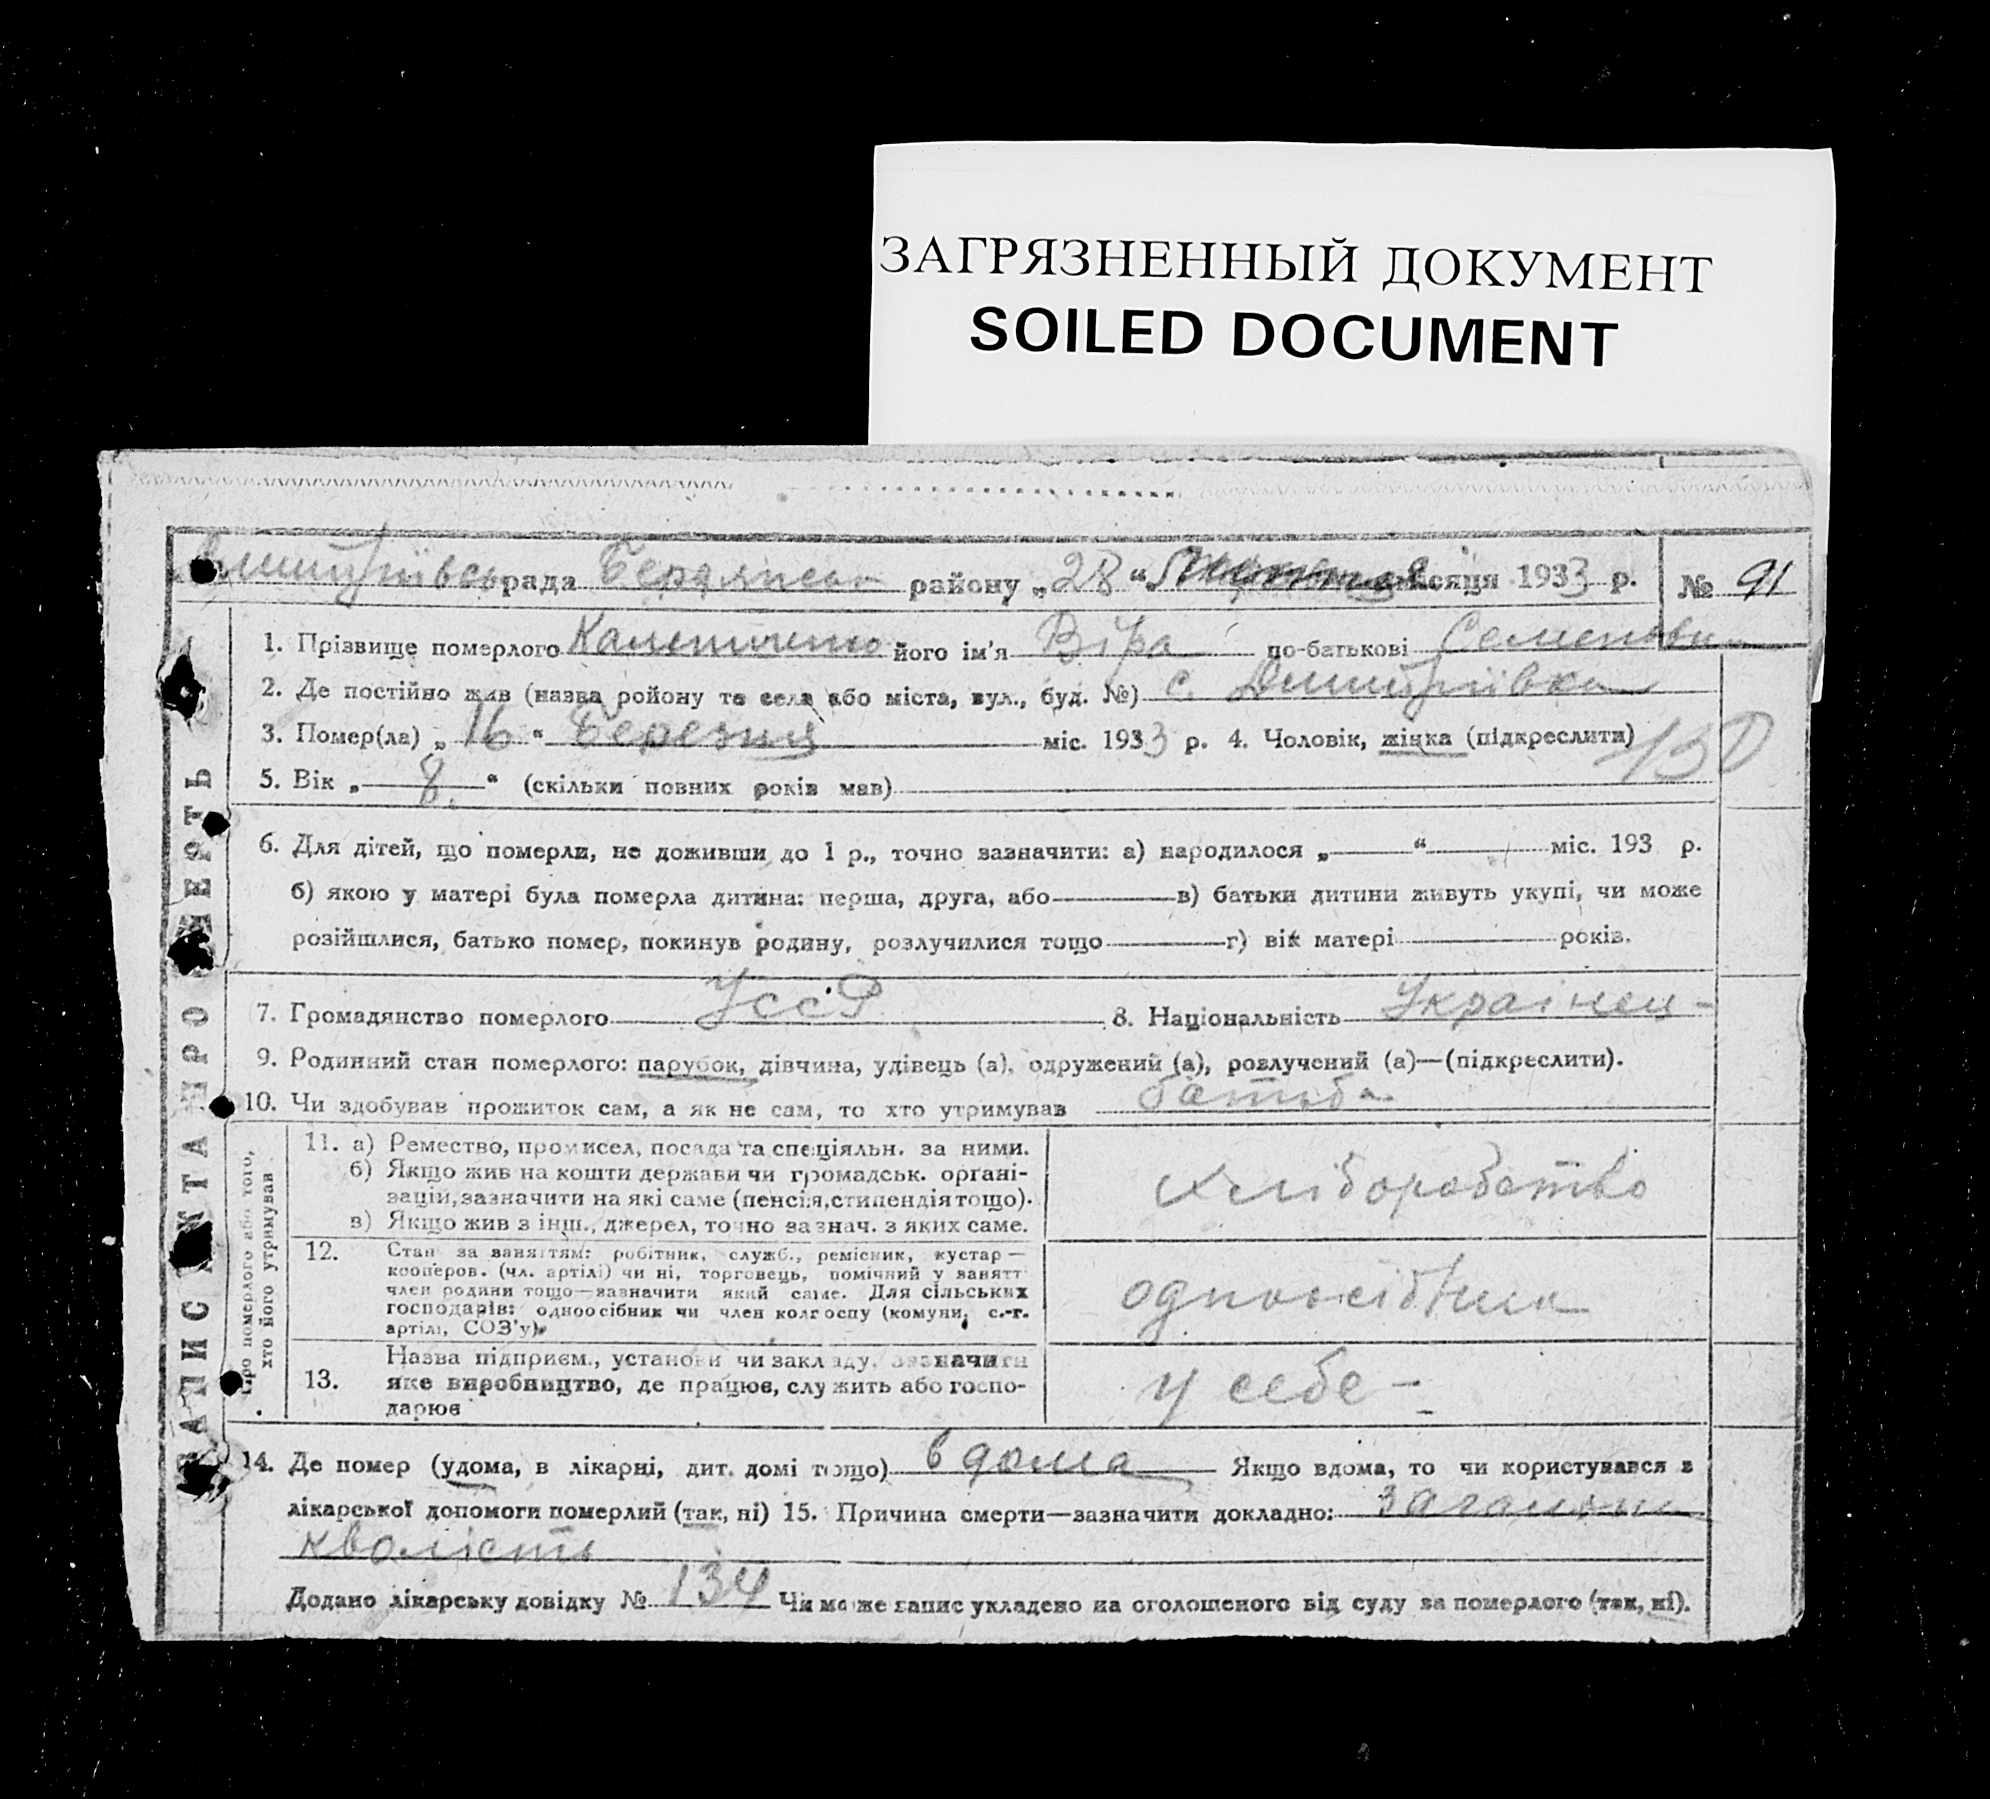 ЗАГРЯЗНЕННЫЙ ДОКУМЕНТ
SOILED DOCUMENT
рада Бердянськ району „28“ місяця 1933 р. № 91
1. Прізвище померлого його ім'я Віра по-батькові Семенівн
2. Де постійно жив (назва ройону та села або міста, вул., буд. №) с. Дмитрівка
3. Помер(ла) „16“ Березня міс. 1933 р. 4. Чоловік, жінка (підкреслити)
150
5. Вік „8.“ (скільки повних років мав)
6. Для дітей, що померли, не доживши до 1 р., точно зазначити: а) народилося „ “ міс. 193 р.
б) якою у матері була померла дитина: перша, друга, або в) батьки дитини живуть укупі, чи може
розійшлися, батько помер, покинув родину, розлучилися тощо г) вік матері років.
7. Громадянство померлого УССР 8. Національність Українец-
9. Родинний стан померлого: парубок, дівчина, удівець (а), одружений (а), розлучений (а)—(підкреслити).
10. Чи здобував прожиток сам, а як не сам, то хто утримував
11. а) Ремество, промисел, посада та спеціяльн. за ними.
б) Якщо жив на кошти держави чи громадськ. органі-
зацій, зазначити на які саме (пенсія, стипендія тощо).
в) Якщо жив з інш., джерел, точно зазнач. з яких саме.
хліборобство
12. Стан за заняттям: робітник, служб., ремісник, кустар—
кооперов. (чл. артілі) чи ні, торговець, помічний у занятт
член родини тощо—зазначити який саме. Для сільських
господарів: одноосібник чи член колгоспу (комуни, с.-г.
артілі, СОЗ'у).
13. Назва підприєм., установи чи закладу, зазначити
яке виробництво, де працює, служить або госпо-
дарює
у себе -
14. Де помер (удома, в лікарні, дит. домі тощо) вдома Якщо вдома, то чи користувався з
лікарської допомоги померлий (так, ні) 15. Причина смерти—зазначити докладно:
кволість
Додано лікарську довідку № 134 Чи може запис укладено на оголошеного від суду за померлого (так, ні).
ЗАПИС АКТА ПРО СМЕРТЬ
Про померлого або того,
хто його утримував